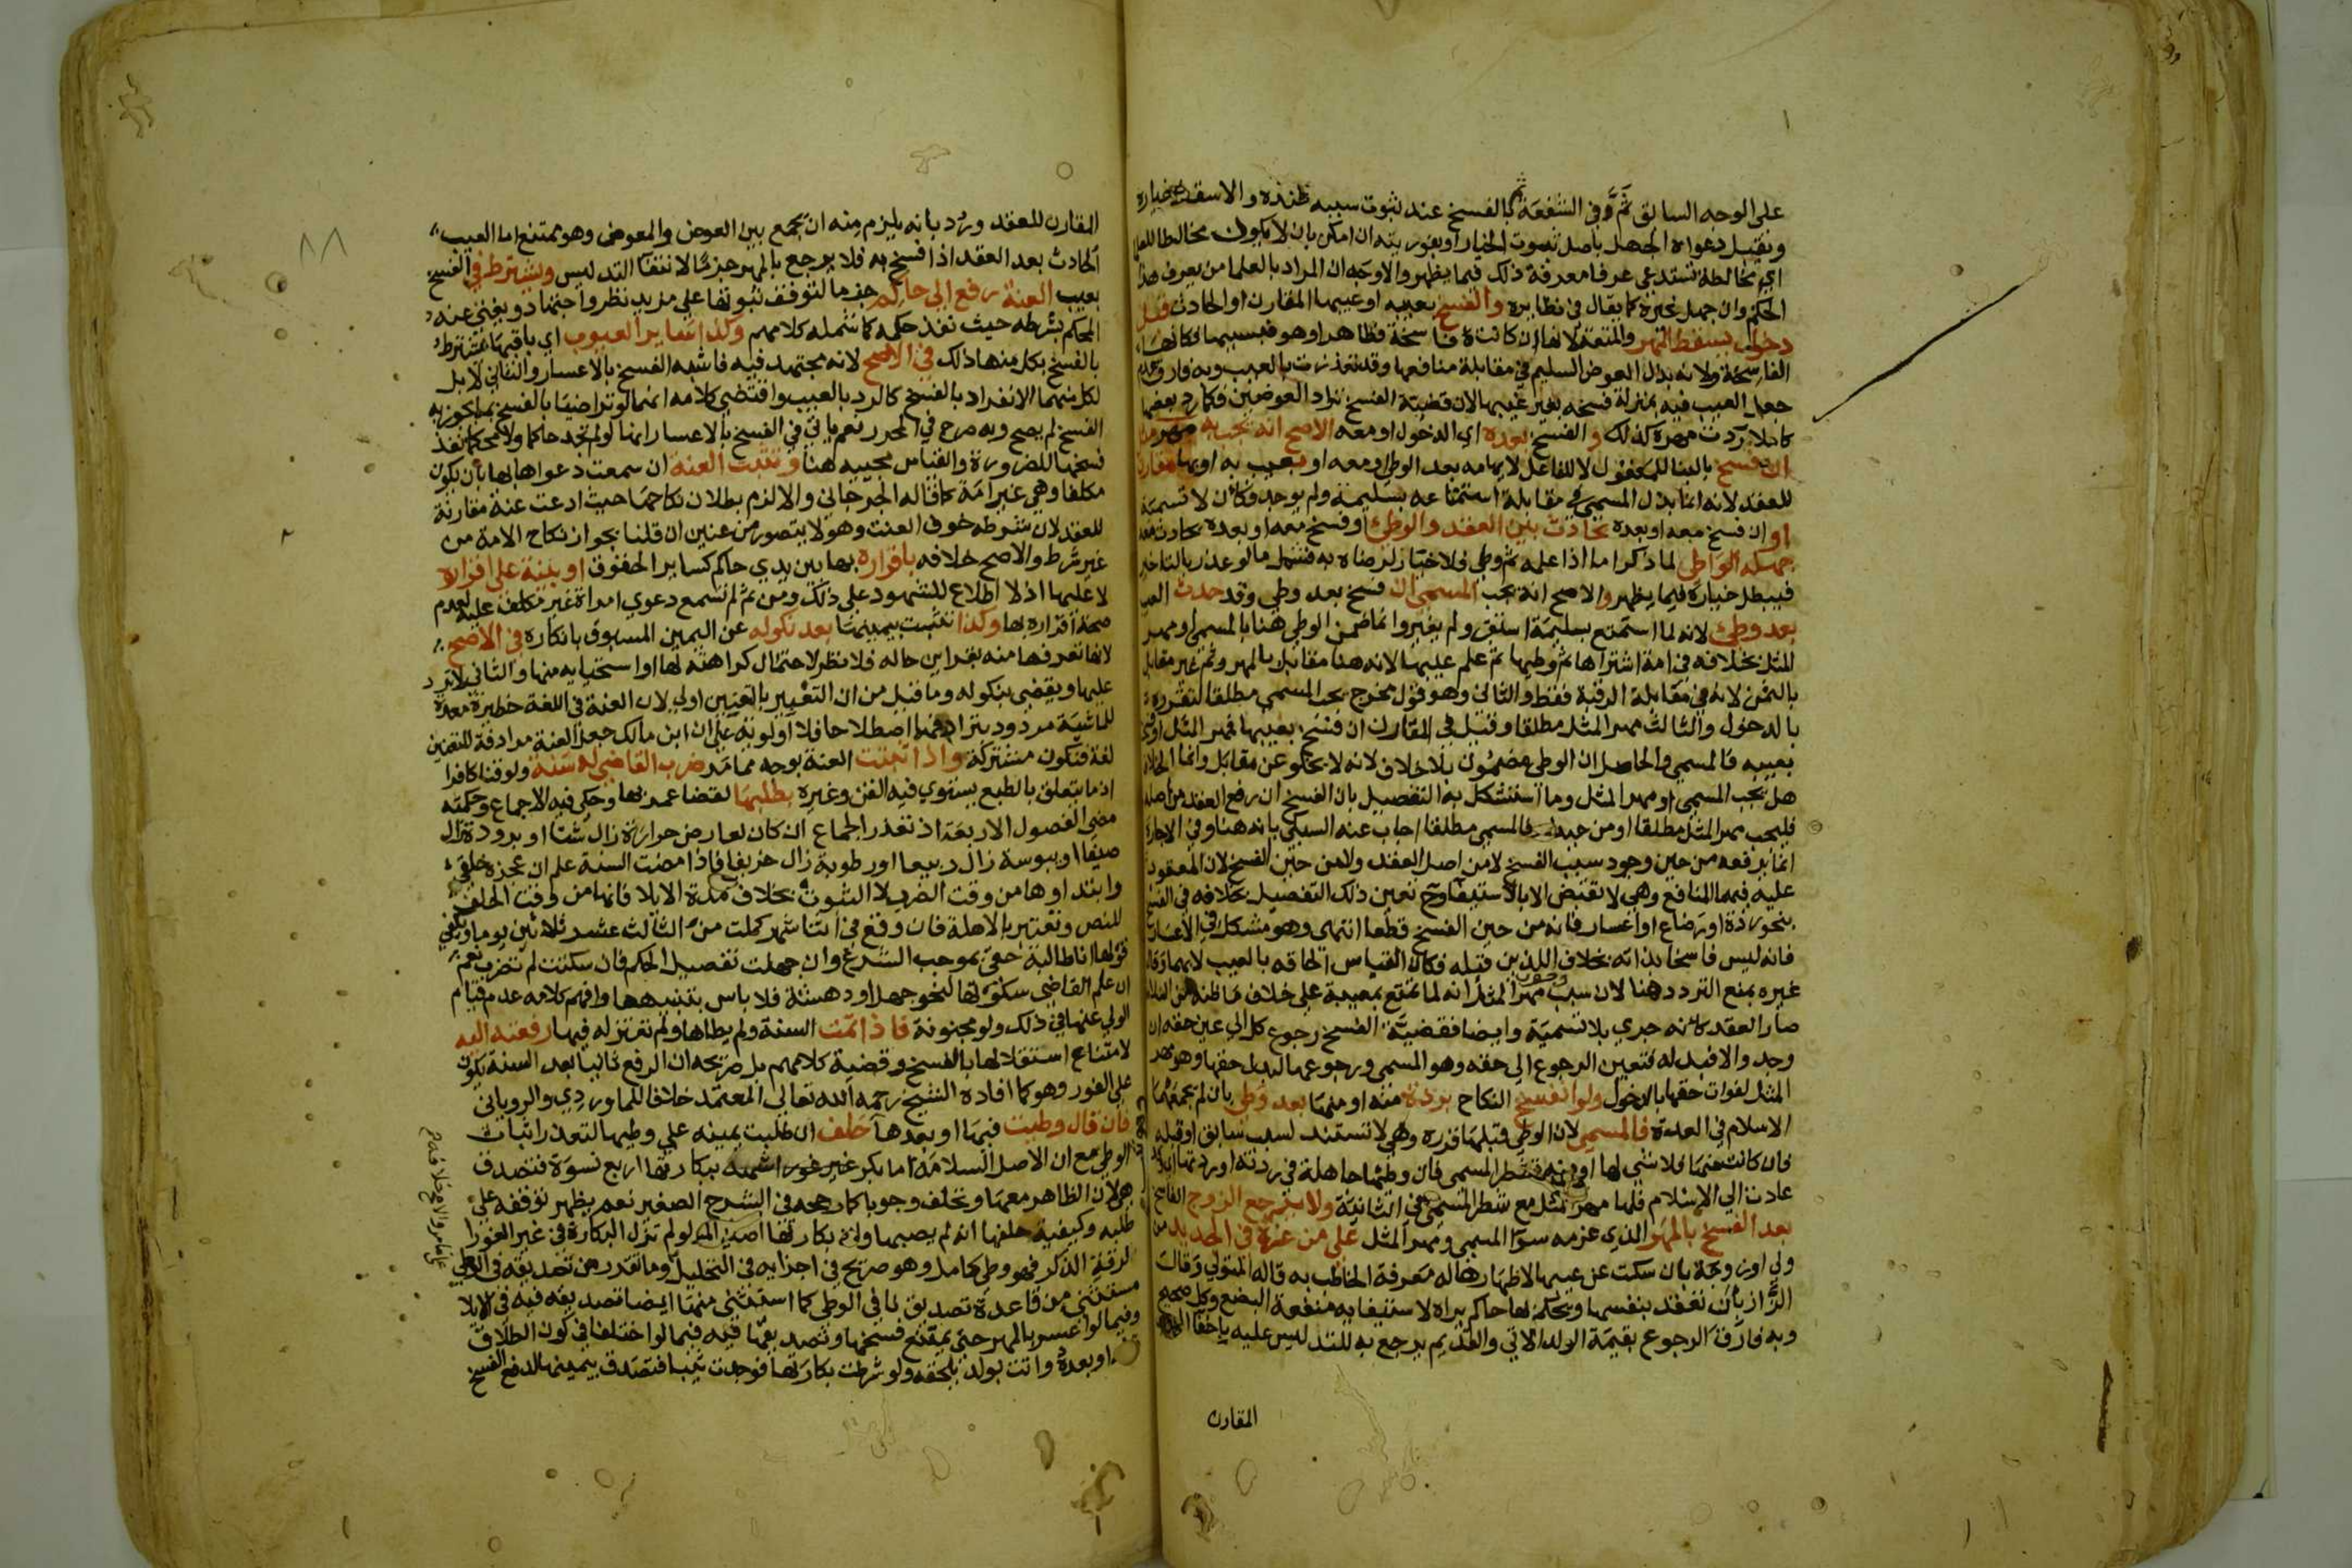 على الوجه السابق ثم وفى الشفعة ثم بالفسخ عند ثبوت سببه عنده والا سقط خياره
وتقبل دعواه الجهل باصل ثبوت الخيار او بفوريته ان امكن بان لا يكون مخالطا للعلما
اي مخالطة تستدعي عرفا معرفة ذلك فيما يظهر والاوجه ان المراد بالعلما من يعرف هذا
الحكم وان جهل غيره كما يقال في نظايره والفسخ بعيبه او عيبها المقارن او الحادث قبل
دخول يسقط المهر والمتعة لانها ان كانت فاسخة فظاهر او هو فبسببها فكانها
الفاسخة ولانه بذل العوض السليم في مقابلة منافعها وقد تعذرت بالعيب وبه فارق عدم
جعل العيب فيه بمنزلة فسخه بغير عيبها لان قضية الفسخ تراد العوضين فكما رد بضعها
كاملا ردت مهره كذلك والفسخ بعده اي الدخول او معه الاصح انه يجب به مهر مثل
ان فسخ بالبنا للمفعول لا للفاعل لايهامه بعد الوطي او معه او بعيب به او بها مقارن
للعقد لانه انما بذل المسمى في مقابلة استمتاعه بسليمة ولم يوجد فكان لا تسمية
او ان فسخ معه او بعده بحادث بين العقد والوطئ او فسخ معه او بعده بحادث معه
جهله الواطي لما ذكر اما اذا علمه ثم وطي فلا خيار لرضاه به فشمل ما لو عذر بالتاخير
فيبطل خياره فيما يظهر والاصح انه يجب المسمى ان فسخ بعد وطي وقد حدث العيب
بعد وطئ لانه لما استمتع بسليمة استقر ولم يغير وانما ضمن الوطي هنا بالمسمى او مهر
المثل بخلافه في امة اشتراها ثم وطيها ثم علم عيبها لانه هنا مقابل بالمهر وثم غير مقابل
بالثمن لانه في مقابلة الرقبة فقط والثاني وهو قول مخرج يجب المسمى مطلقا لتقرره
بالدخول والثالث مهر المثل مطلقا وقيل في المقارن ان فسخ بعيبها فمهر المثل او
بعيبه فالمسمى والحاصل ان الوطي مضمون بلا خلاف لانه لا يخلو عن مقابل وانما الخلاف
هل يجب المسمى او مهر المثل وما استشكل به التفصيل بان الفسخ ان رفع العقد من اصله
فليجب مهر المثل مطلقا او من حينه فالمسمى مطلقا اجاب عنه السبكي بانه هنا وفي الاجارة
انما يرفعه من حين وجود سبب الفسخ لا من اصل العقد ولا من حين الفسخ لان المعقود
عليه فيهما المنافع وهي لا تقبض الا بالاستيفا وح تعين ذلك التفصيل بخلافه في الفسخ
بنحو ردة او رضاع او اعسار فانه من حين الفسخ قطعا انتهى وهو مشكل في الاعسار
فانه ليس فاسخا بذاته بخلاف اللذين قبله فكان القياس الحاقه بالعيب لا بهما وقال
غيره يمنع التردد هنا لان سبب وجوب مهر المثل انه لما تمتع بمعيبة على خلاف ما ظنه من السلامة
صار العقد كانه جرى بلا تسمية وايضا فقضية الفسخ رجوع كل الى عين حقه ان
وجد والا فبدله فتعين الرجوع الى حقه وهو المسمى ورجوعها لبدل حقها وهو مهر
المثل لفوات حقها بالدخول ولو انفسخ النكاح بردة منه او منها بعد وطي بان لم يجمعهما
الاسلام في العدة فالمسمى لان الوطي قبلها قرره وهي لا تستند لسبب سابق او قبله
فان كانت منها فلا شئ لها او منه فشطر المسمى فان وطئها جاهلة في ردته او ردتها
عادت الى الاسلام فلها مهر مثل مع شطر المسمى في الثانية ولا يرجع الزوج الفاسخ
بعد الفسخ بالمهر الذي غرمه سوا المسمى ومهر المثل على من غره في الجديد من
ولي او زوجة بان سكت عن عيبها لاظهارها له معرفة الخاطب به قاله المتولي وقال
الزاز بان تعقد بنفسها ويحكم لها حاكم يراه لاستيفايه منفعة البضع وكل صحيح
وبه فارق الرجوع بقيمة الولد الاتي والقديم يرجع به للتدليس عليه باخفا العيب
المقارن
٨٨
المقارن للعقد ورد بانه يلزم منه ان يجمع بين العوض والمعوض وهو ممتنع اما العيب
الحادث بعد العقد اذا فسخ به فلا يرجع بالمهر جزما لانتفا التدليس ويشترط في الفسخ
بعيب العنة رفع الى حاكم جزما لتوقف ثبوتها على مزيد نظر واجتهاد ويغني عنه
المحكم بشرطه حيث نفذ حكمه كما شمله كلامهم وكذا ساير العيوب اي باقيها يشترط
بالفسخ بكل منها ذلك في الاصح لانه مجتهد فيه فاشبه الفسخ بالاعسار والثاني لا بل
لكل منهما الانفراد بالفسخ كالرد بالعيب واقتضى كلامه انهما لو تراضيا بالفسخ بما يجوز به
الفسخ لم يصح وبه صرح في المحرر نعم ياتي في الفسخ بالاعسار انها لو لم تجد حاكما ولا محكما نفذ
فسخها للضرورة والقياس مجيبه هنا وتثبت العنة ان سمعت دعواها بها بان يكون
مكلفا وهي غير امة كما قاله الجرجاني والا لزم بطلان نكاحها حيث ادعت عنة مقارنة
للعقد لان شرطه خوف العنت وهو لا يتصور من عنين ان قلنا بجواز نكاح الامة من
غير شرط والاصح خلافه باقراره بها بين يدي حاكم كساير الحقوق او بينة على اقراره
لا عليها اذ لا اطلاع للشهود على ذلك ومن ثم لم تسمع دعوى امراة غير مكلف عليه لعدم
صحة اقراره بها وكذا تثبت بيمينها بعد نكوله عن اليمين المسبوق بانكاره في الاصح
لانها تعرفها منه بقراين حاله فلا نظر لاحتمال كراهته لها او استحيايه منها والثاني لا ترد
عليها ويقضى بنكوله وما قيل من ان التعبير بالتعنين اولى لان العنة في اللغة حظيرة معدة
للماشية مردود بترادفهما اصطلاحا فلا اولوية على ان ابن مالك جعل العنة مرادفة للتعنين
لغة فتكون مشتركة واذا ثبتت العنة بوجه مما مر ضرب القاضي له سنة ولو قنا كافرا
اذ ما يتعلق بالطبع يستوي فيه القن وغيره بطلبها لقضا عمر بها وحكي فيه الاجماع وحكمته
مضى الفصول الاربعة اذ تعذر الجماع ان كان لعارض حرارة زال شتا او برودة زال
صيفا او يبوسة زال ربيعا او رطوبة زال خريفا فاذا مضت السنة علم ان عجزه خلقي
وابتداوها من وقت الضرب لا الثبوت بخلاف مدة الايلا فانها من وقت الحلف
للنص وتعتبر بالاهلة فان وقع في اثنا شهر كملت من الثالث عشر ثلاثين يوما ويكفي
قولها انا طالبة حقي بموجب الشرع وان جهلت تفصيل الحكم فان سكتت لم تضرب نعم
ان علم القاضي سكوتها لنحو جهل او دهشة فلا باس بتنبيهها وافهم كلامه عدم قيام
الولي عنها في ذلك ولو مجنونة فاذا تمت السنة ولم يطاها ولم تعتزله فيها رفعته اليه
لامتناع استقلالها بالفسخ وقضية كلامهم بل صريحه ان الرفع ثانيا بعد السنة يكون
على الفور وهو كما افاده الشيخ رحمه الله تعالى المعتمد خلافا للماوردي والروياني
فان قال وطيت فيها او بعدها حلف ان طلبت يمينه على وطيها لتعذر اثبات
الوطي مع ان الاصل السلامة اما بكر غير غورا شهد ببكارتها اربع نسوة فتصدق
هي لان الظاهر معها وتحلف وجوبا كما رجحه في الشرح الصغير نعم يظهر توقفه على
طلبه وكيفية حلفها انه لم يصبها وان بكارتها اصلية ولو لم تزل البكارة في غير الغورا
لرقة الذكر فهو وطي كامل وهو صريح في اجزايه في التحليل وما تقدر من تصديقه في الوطي
مستثنى من قاعدة تصديق نافي الوطي كما استثنى منها ايضا تصديقه فيه في الايلا
وفيما لو اعسر بالمهر حتى يمتنع فسخها وتصديقها فيه فيما لو اختلفا في كون الطلاق
او بعده واتت بولد يلحقه ولو شرطت بكارتها فوجدت ثيبا فتصدق بيمينها لدفع الفسخ